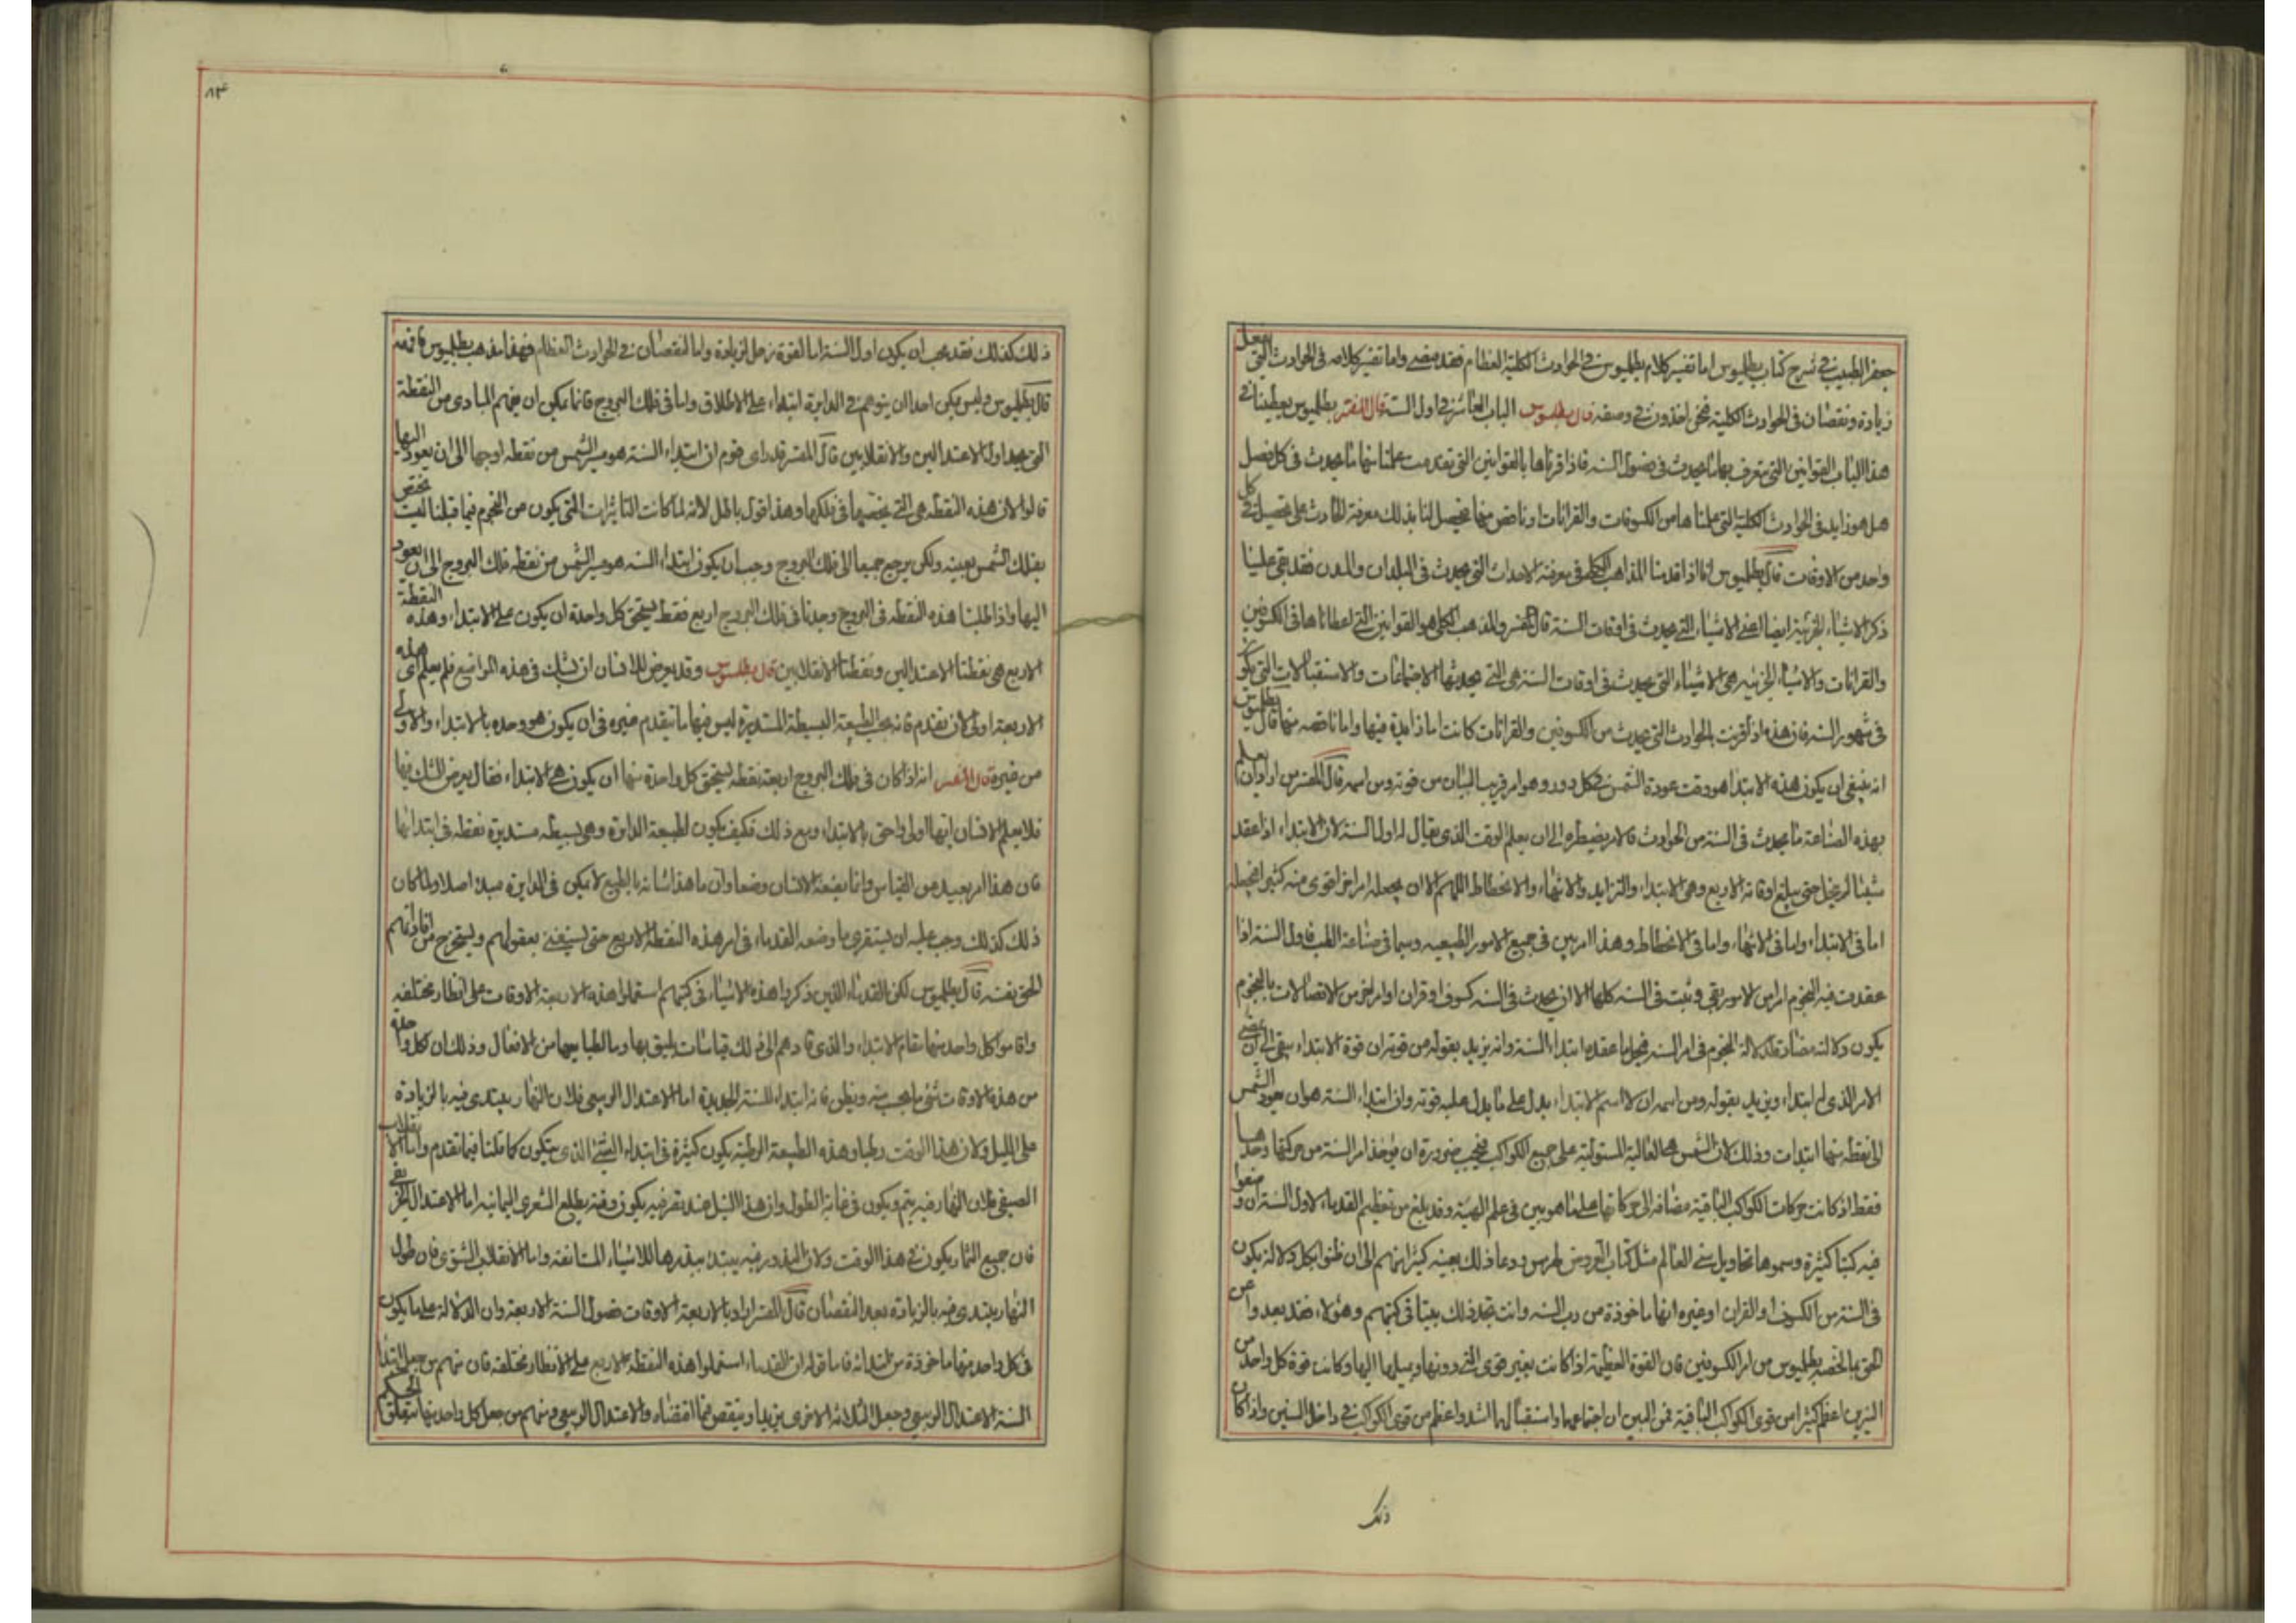 جعفر الطبيب في شرح كتاب بطلميوس اما تفسير كلام بطلميوس في الحوادث الكلية العظام فقد مضى واما تفسير كلامه في الحوادث التي يفعل
زيادة ونقصان في الحوادث الكلية فنحن اخذون في وصفه قال بطلميوس الباب العاشر في اول السنة قال المفسر بطلميوس يعطينا في
هذا الباب القوانين التي يتعرف بها ما يحدث في فصول السنه فاذا قرناها بالقوانين التي تقدمت علمنا منها ما يحدث في كل فصل
هل هو زايد في الحوادث الكلية التي علمناها من الكسوفات والقرانات او ناقص منها فيحصل لنا بذلك معرفة الحادث على تحصيل في كل
واحد من الاوقات قال بطلميوس فاما اذا قدمنا المذاهب الكلي في معرفة الاحداث التي يحدث في البلدان والمدن فقد بقي علينا
ذكر الاشياء الجزئية ايضا اعني الاشياء التي يحدث في اوقات السنة قال المفسر والمذهب الكلي هو القوانين التي اعطاناها في الكسوفين
والقرانات والاشياء الجزئيه هي الاشياء التي يحدث في اوقات السنه هي التي يحدثها الاجتماعات والاستقبالات التي يكون
في شهور السنه فان هذه اذا قرنت بالحوادث التي يحدث من الكسوفين والقرانات كانت اما زايدة فيها واما ناقصه منها قال بطلميوس
انه ينبغي ان يكون هذه الابتدا هو وقت عودة الشمس في كل دور وهو امر قريب البيان من قوته ومن اسمه قال المفسر من اراد ان يعلم
بهذه الصناعة ما يحدث في السنة من الحوادث فالامر يضطره الى ان يعلم الوقت الذي يقال له اول السنة لان الابتداء اذا عقد
شيئا لم يخل حتى يبلغ اوقاته الاربع وهي الابتداء والتزايد والانتهاء والانحطاط اللهم الا ان يحله امر اخر اقوى منه كثيرا فيحله
اما في الابتداء واما في الانتهاء واما في الانحطاط وهذا امر بين في جميع الامور الطبيعيه وسيما في صناعة الطب فاول السنة اذا
عقدت فيه النجوم امرا من الامور بقي وثبت في السنه كلها الا ان يحدث في السنه كسوف او قران او امر اخر من الاتصالات بالنجوم
يكون دلالته مضادة لدلالة النجوم في امر السنه فيحل ما عقده ابتداء السنة وانه يريد بقوله من قوته ان قوة الابتداء يبقى الى ان
الامر الذي له ابتداء ويريد بقوله ومن اسمه ان لا اسم الابتداء يدل على ما يدل عليه قوته وان ابتداء السنه هو ان يعود الشمس
الى نقطه منها ابتدات وذلك لان الشمس هي الغالبة المستولية على جميع الكواكب فيجب ضرورة ان يوخذ امر السنة من حركتها وحدها
فقط اذ كانت حركات الكواكب الباقية مضافه الى حركاتها على ما هو بين في علم الهيئة وقد بلغ من تعظيم القدماء لاول السنة ان وضعوا
فيه كتبا كثيرة وسموها تحاويل سني العالم مثل كتاب وذلك بعينه كثيرا منهم الى ان ظنوا بكل دلالة يكون
في السنة من الكسوف او القران او غيره انها ماخوذة من رب السنه وانت تجد ذلك بينا في كتبهم وهؤلاء فقد بعدوا عن
الحق بما لخصه بطلميوس من امر الكسوفين فان القوة العظيمة اذا كانت بغير قوى التي دونها ويميلها اليها وكانت قوة كل واحد من
النيرين اعظم كثيرا من قوى الكواكب الباقية فمن البين ان اجتماعهما واستقبالهما اشد واعظم من قوى الكواكب في داخل السنين واذا كان
ذلك
٨٣
ذلك كذلك فقد يجب ان يكون اول السنة اما لقوة زحل لزيادة واما لنقصان في الحوادث العظام فهذا مذهب بطلميوس فافهمه
قال بطلميوس وليس يمكن احدا ان يتوهم في الدايرة ابتداء على الاطلاق واما في فلك البروج فانما يمكن ان يفهم المبادي من النقطة
التي يحدها الاعتدالين والانقلابين قال المفسر قد راى قوم ان ابتداء السنة هو مسير الشمس من نقطه اوجها الى ان يعود اليها
قالوا لان هذه النقطه هي التي يخصها في فلكها وهذا قول باطل لانه لما كانت التاثيرات التي يكون من النجوم فيما قبلنا ليست يختص
بفلك الشمس بعينه ولكن يرجع جميعا الى فلك البروج وجب ان يكون ابتداء السنه هو مسير الشمس من نقطه فلك البروج الى ان يعود
اليها واذا طلبنا هذه النقطه في البروج وجدنا في فلك البروج اربع نقط يستحق كل واحدة ان يكون على الابتداء وهذه النقطة
الاربع هي نقطتا الاعتدالين ونقطتا الانقلابين قال بطلميوس وقد يعرض للانسان ان يشك في هذه المواضع فلم يعلم اي هذه
الاربعة اولى لان يتقدم فانه بحسب الطبيعة البسيطة المستديرة ليس فيها ما يتقدم غيره في ان يكون هو وحده بالابتداء والاولى
من غيره قال المفسر انه اذا كان في فلك البروج اربعة نقطه يستحق كل واحدة منها ان يكون هي الابتداء فقال يعرض الشك فيها
فلا يعلم الانسان ايها اولى واحق بالابتداء ومع ذلك فكيف يكون لطبيعة الدايرة وهي بسيطه مستديرة نقطه في ابتدائها
فان هذا امر بعيد من القياس وانما يضعه الانسان وضعا وان ما هذا شانه بالطبع لا يمكن في الدايرة مبدء اصلا ولما كان
ذلك كذلك وجب عليه ان يستقري ما وضعه القدماء في امر هذه النقطه الاربع حتى يستغنى بعقولهم ويستخرج من اقاويلهم
الحق بعينه قال بطلميوس لكن القدماء الذين ذكروا هذه الاشياء في كتبهم استعملوا هذه الاربعة الاوقات على انظار مختلفه
واقاموا كل واحد منها مقام الابتداء والذي قادهم الى ذلك قياسات يليق بها وبالطبايعها من الافعال وذلك ان كل واحد
من هذه الاوقات شئ ما يجب منه ويظن فانه ابتداء للسنة الجديدة اما الاعتدال الربيعي فلان النهار يبتدى فيه بالزيادة
على الليل ولان هذا الوقت رطبا وهذه الطبيعة الرطبة يكون كثيرة في ابتداء الشئ الذي يتكون كما قلنا فيما تقدم واما الانقلاب
الصيفي فلان النهار فيه يتم ويكون في غاية الطول وان هذا النيل عند تعرضه يكون وفته يطلع الشعرى اليمانيه اما الاعتدال الخريفي
فان جميع الثمار يكون في هذا الوقت ولان البذور فيه يبتدئ ببذرها للاشياء المستانفة واما الانقلاب الشتوي فان طول
النهار يبتدي فيه بالزيادة بعد النقصان قال المفسر اراد بالاربعة الاوقات فصول السنة الاربعة وان الدلالة على ما يكون
في كل واحد منها ماخوذة من ابتدائه فاما قوله ان القدماء استعملوا هذه النقطه الاربع على الانظار مختلفه فان منهم من جعل ابتدا
السنة الاعتدال الربيعي وجعل الثلاثة الاخرى يزيد او ينقص فيما اقتضاه الاعتدال الربيعي ومنهم من جعل كل واحد منها يتعلق الحكم